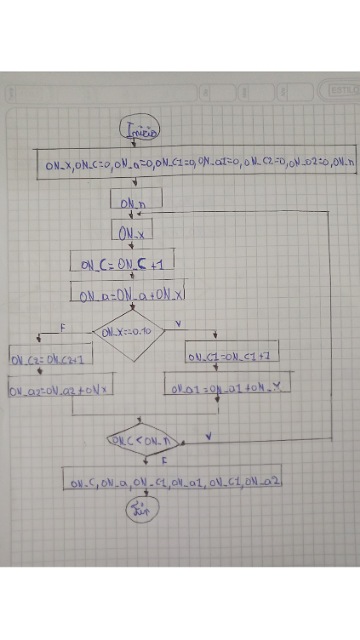 ESTILO
Inicio
ON_X, ON_C=0, ON_a=0, ON_C1=0, ON_a1=0, ON_C2=0, ON_a2=0, ON_n
ON_n
ON_X
ON_C=ON_C+1
ON_a=ON_a+ON_X
F
V
ON_C2=ON_C2+1
ON_C1=ON_C1+1
ON_a2=ON_a2+ONX
ON_a1=ON_a1+ON_X
ON_C<ON_n
V
F
ON_C, ON_a, ON_C1, ON_a1, ON_C1, ON_a2
Fin